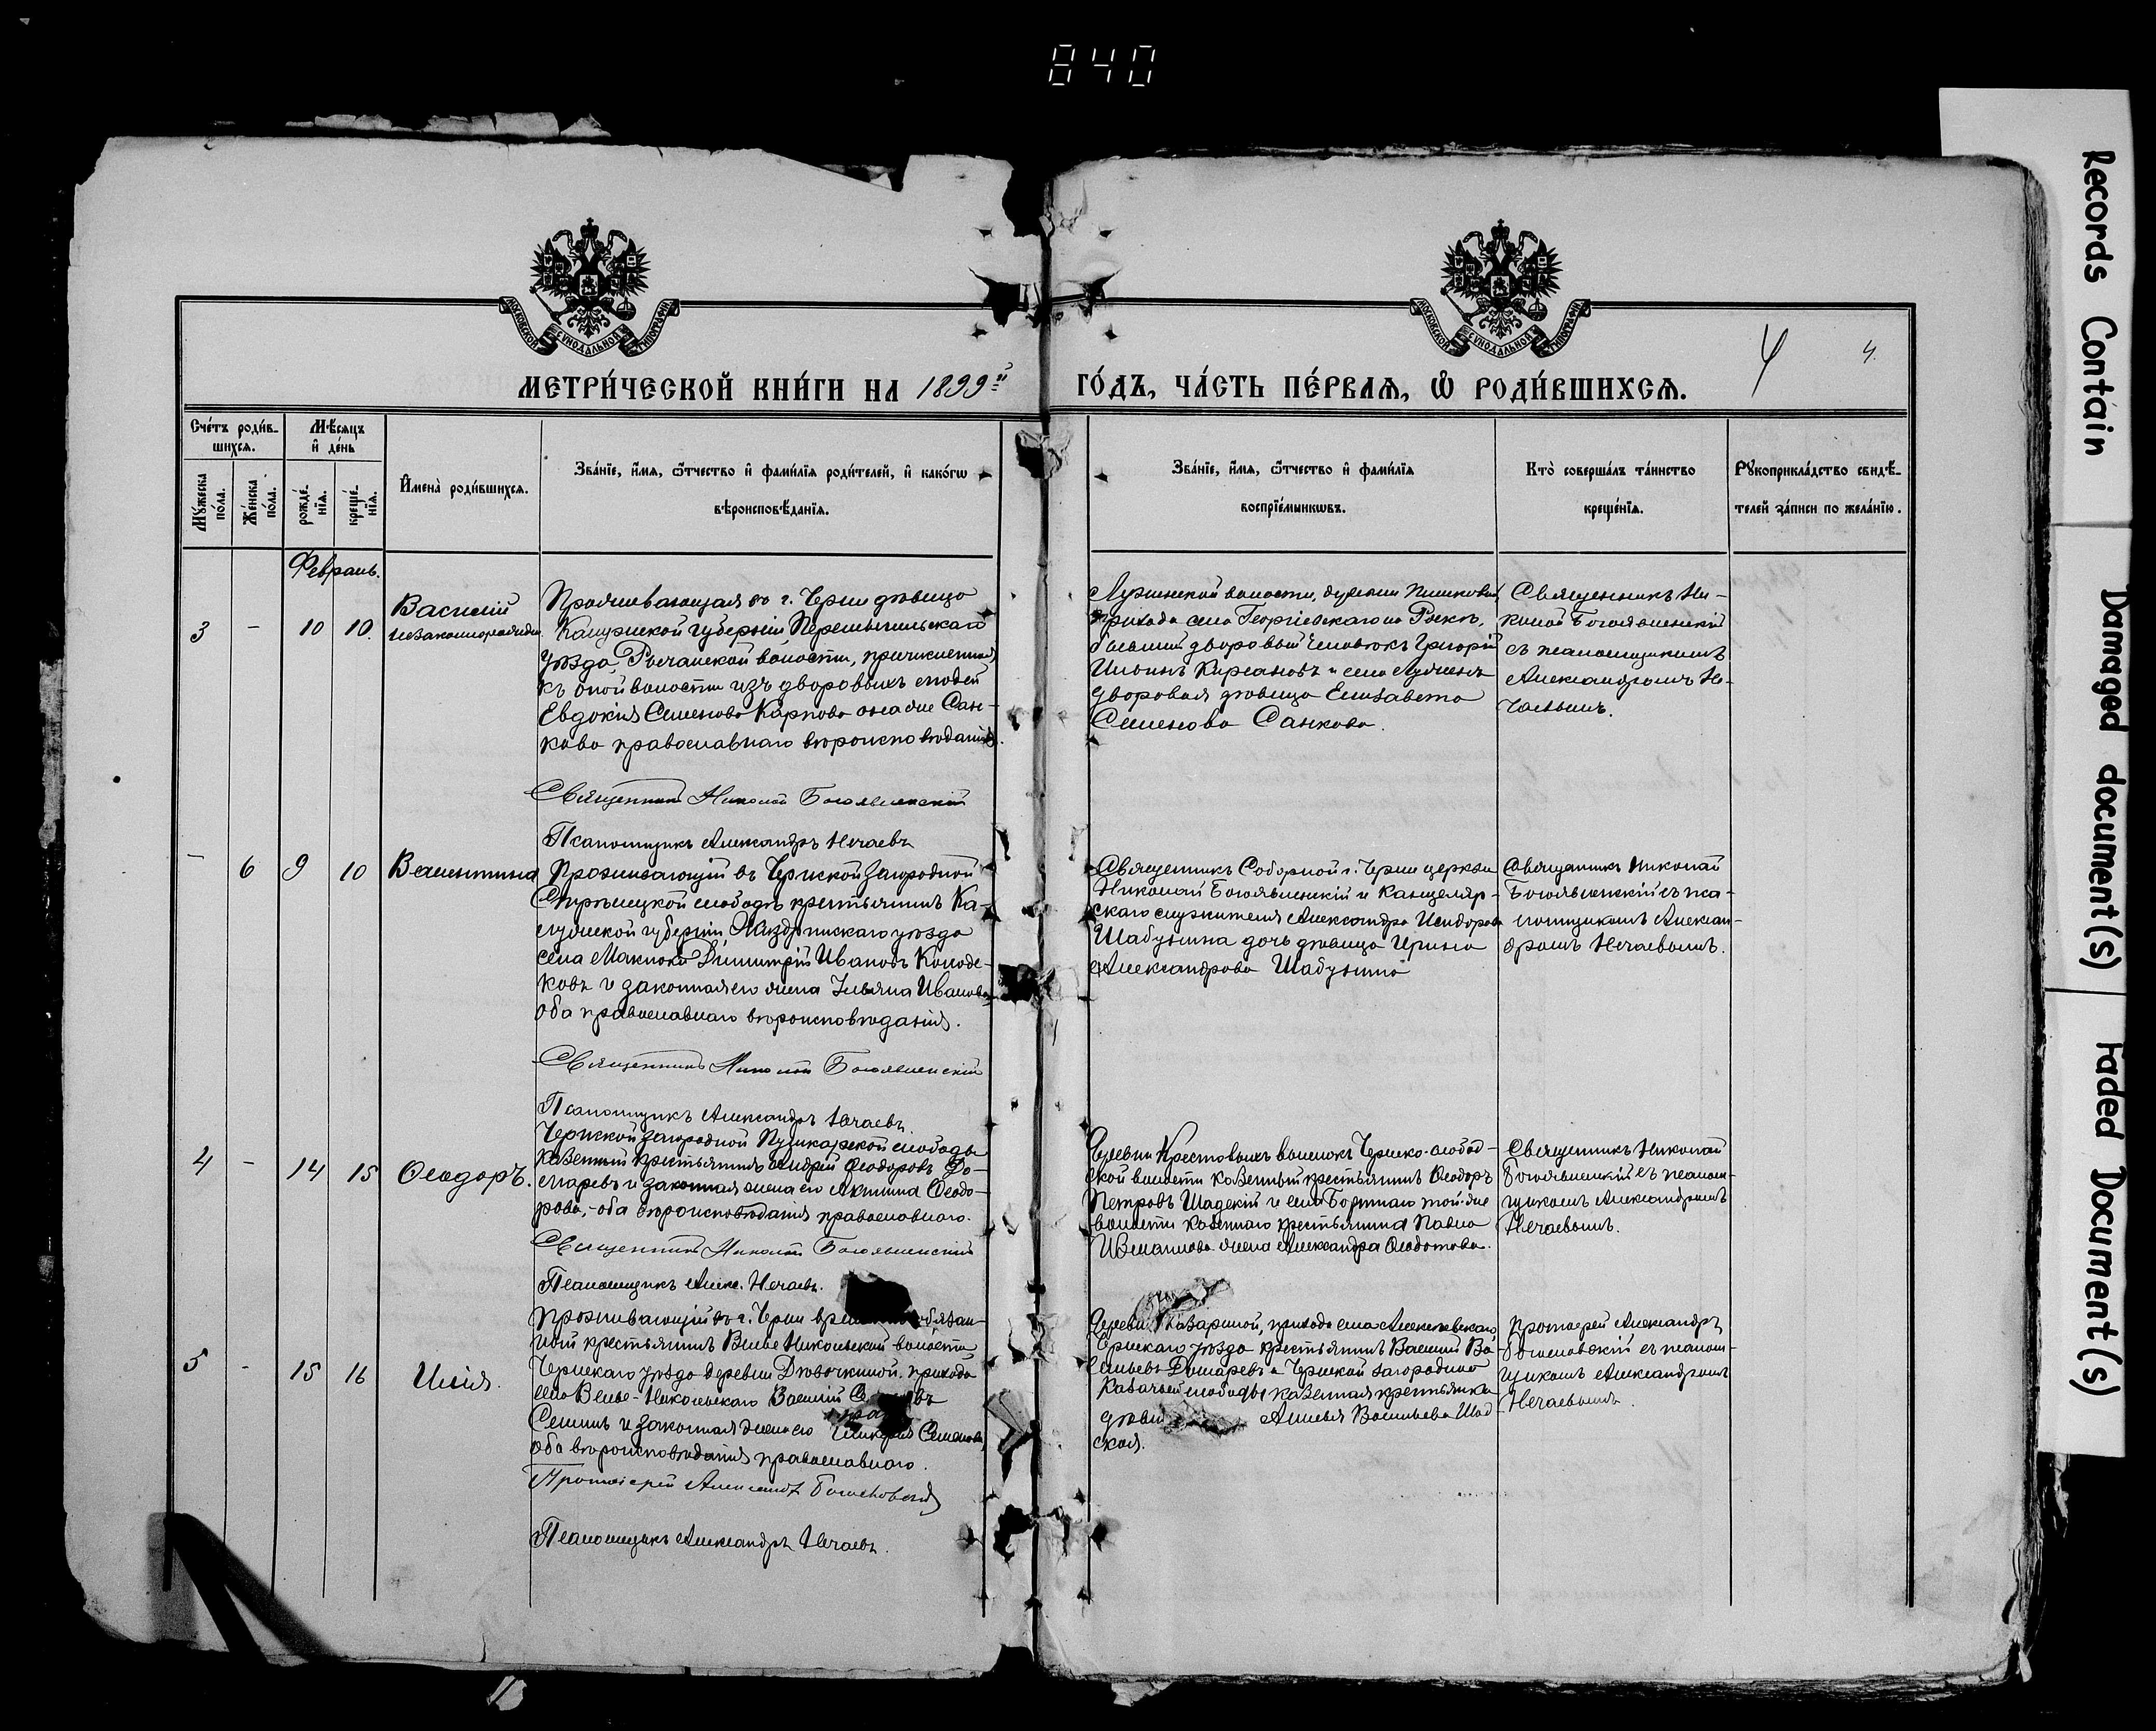 840
Records Contain
Damaged document(s)
Faded Document(s)
МОСКОВСКОЙ СѴНОДАЛЬНОЙ ТИПОГРАФІИ
МОСКОВСКОЙ СѴНОДАЛЬНОЙ ТИПОГРАФІИ
4 4.
МЕТРИ́ЧЕСКОЙ КНИ́ГИ НА 1899й
ГО́ДЪ, ЧА́СТЬ ПЕ́РВАЯ, Ѡ РОДИ́ВШИХСЯ.
Сче́тъ роди́в-
шихся.
Мѣ́сяцъ
и де́нь
Му́жеска
по́ла.
Же́нска
по́ла.
рожде́-
нія.
креще́-
нія.
Имена̀ роди́вшихся.
Зва́ніе, и́мя, ѻ́тчество и фами́лія роди́телей, и како́гѡ
вѣроисповѣ́данія.
Зва́ніе, и́мя, ѻ́тчество и фами́лія
воспріе́мникѡвъ.
Кто̀ соверша́лъ та́инство
креще́нія.
Рꙋкоприкла́дство свидѣ́-
телей за́писи по жела́нію.
Февраль.
3 - 10 10.
Василій
незаконнорожден.
Проживающая въ г. Черни дѣвица
Калужской губерніи, Перемышльскаго
уѣзда, волости, причисленная
къ оной волости изъ дворовыхъ людей
Евдокія Семенова Карпова она же Сан-
кова православнаго вѣроисповѣданія.
Священникъ Николай Богоявленскій
Псаломщикъ Александръ Нечаевъ
волости, деревни
прихода села Георгіевскаго
бывшій дворовый человѣкъ Григорій
Ильинъ Кирсановъ и села
дворовая дѣвица Елизавета
Семенова Санкова.
Священникъ Ни-
колай Богоявленскій
съ псаломщикомъ
Александромъ Не-
чаевымъ.
- 6 9 10 Валентина
Проживающій въ Чернской загородной
Стрѣлецкой слободѣ крестьянинъ Ка-
лужской губерніи Жиздринскаго уѣзда
села Маклока Димитрій Ивановъ Колоде-
ковъ и законная его жена Ульяна Иванова
оба православнаго вѣроисповѣданія.
Священникъ Николай Богоявленскій
Псаломщикъ Александръ Нечаевъ.
Священникъ Соборной г. Черни церкви
Николай Богоявленскій и канцеляр-
скаго служителя Александра Исидорова
Шабунина дочь дѣвица Ирина
Александрова Шабунина
Священникъ Николай
Богоявленскій съ пса-
ломщикомъ Алексан-
дромъ Нечаевымъ.
4 - 14 15 Ѳеодоръ.
Чернской загородной Пушкарской слободы
казенный крестьянинъ Андрей Ѳеодоровъ До-
маревъ и законная жена его Акилина Ѳеодо-
рова, - оба вѣроисповѣданія православнаго.
Священникъ Николай Богоявленскій
Псаломщикъ Алекс. Нечаевъ.
Деревни Крестовыхъ выселокъ Чернско-слобод-
ской волости казенный крестьянинъ Ѳеодоръ
Петровъ Шадскій и села той-же
волости казеннаго крестьянина Павла
Измаилова жена Александра Ѳедотова.
Священникъ Николай
Богоявленскій съ псалом-
щикомъ Александромъ
Нечаевымъ.
5 - 15 16 Илія.
Проживающій въ г. Черни обязан-
ный крестьянинъ Велье Никольской волости
Чернскаго уѣзда деревни Дѣвочкиной, прихода
села Велье-Никольскаго Василій
Семинъ и законная жена его Семенова,
оба вѣроисповѣданія православнаго.
Протоіерей Александръ
Псаломщикъ Александръ Нечаевъ.
Деревни прихода села
Чернскаго уѣзда крестьянинъ Василій Ва-
сильевъ Домаревъ и Чернской загородной
Казачьей слободы казенная крестьянка
Васильева Шад-
ская.
Протоіерей Александръ
съ псалом-
щикомъ Александромъ
Нечаевымъ.